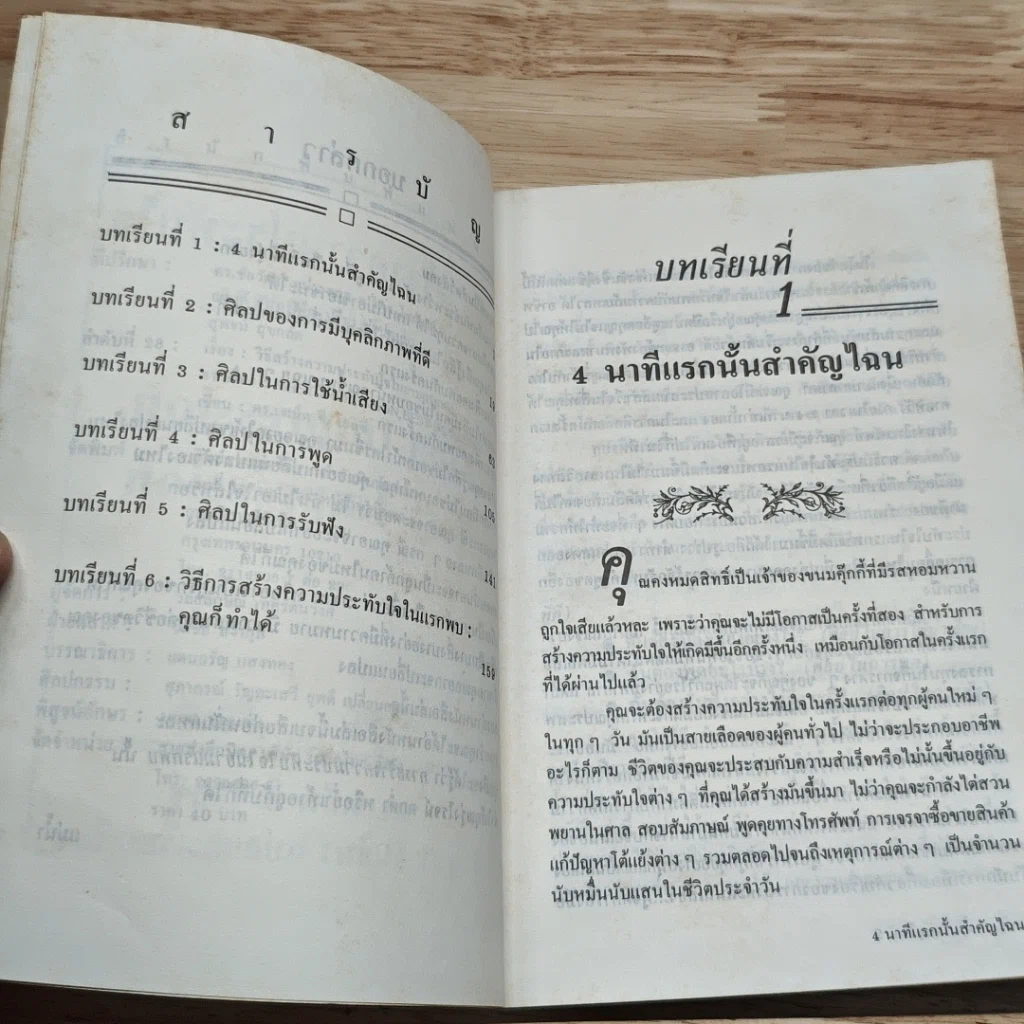 สารบัญ
บทเรียนที่ 1 : 4 นาทีแรกนั้นสำคัญไฉน
บทเรียนที่ 2 : ศิลปของการมีบุคลิกภาพที่ดี
บทเรียนที่ 3 : ศิลปในการใช้น้ำเสียง
บทเรียนที่ 4 : ศิลปในการพูด
105
บทเรียนที่ 5 : ศิลปในการรับฟัง
141
บทเรียนที่ 6 : วิธีการสร้างความประทับใจในแรกพบ :
คุณก็ทำได้
159
บทเรียนที่
1
4 นาทีแรกนั้นสำคัญไฉน
คุณคงหมดสิทธิ์เป็นเจ้าของขนมคุ๊กกี้ที่มีรสหอมหวาน
ถูกใจเสียแล้วหละ เพราะว่าคุณจะไม่มีโอกาสเป็นครั้งที่สอง สำหรับการ
สร้างความประทับใจให้เกิดมีขึ้นอีกครั้งหนึ่ง เหมือนกับโอกาสในครั้งแรก
ที่ได้ผ่านไปแล้ว
คุณจะต้องสร้างความประทับใจในครั้งแรกต่อทุกผู้คนใหม่ ๆ
ในทุก ๆ วัน มันเป็นสายเลือดของผู้คนทั่วไป ไม่ว่าจะประกอบอาชีพ
อะไรก็ตาม ชีวิตของคุณจะประสบกับความสำเร็จหรือไม่นั้นขึ้นอยู่กับ
ความประทับใจต่าง ๆ ที่คุณได้สร้างมันขึ้นมา ไม่ว่าคุณจะกำลังไต่สวน
พยานในศาล สอบสัมภาษณ์ พูดคุยทางโทรศัพท์ การเจรจาซื้อขายสินค้า
แก้ปัญหาโต้แย้งต่าง ๆ รวมตลอดไปจนถึงเหตุการณ์ต่าง ๆ เป็นจำนวน
นับหมื่นนับแสนในชีวิตประจำวัน
4 นาทีแรกนั้นสำคัญไฉน